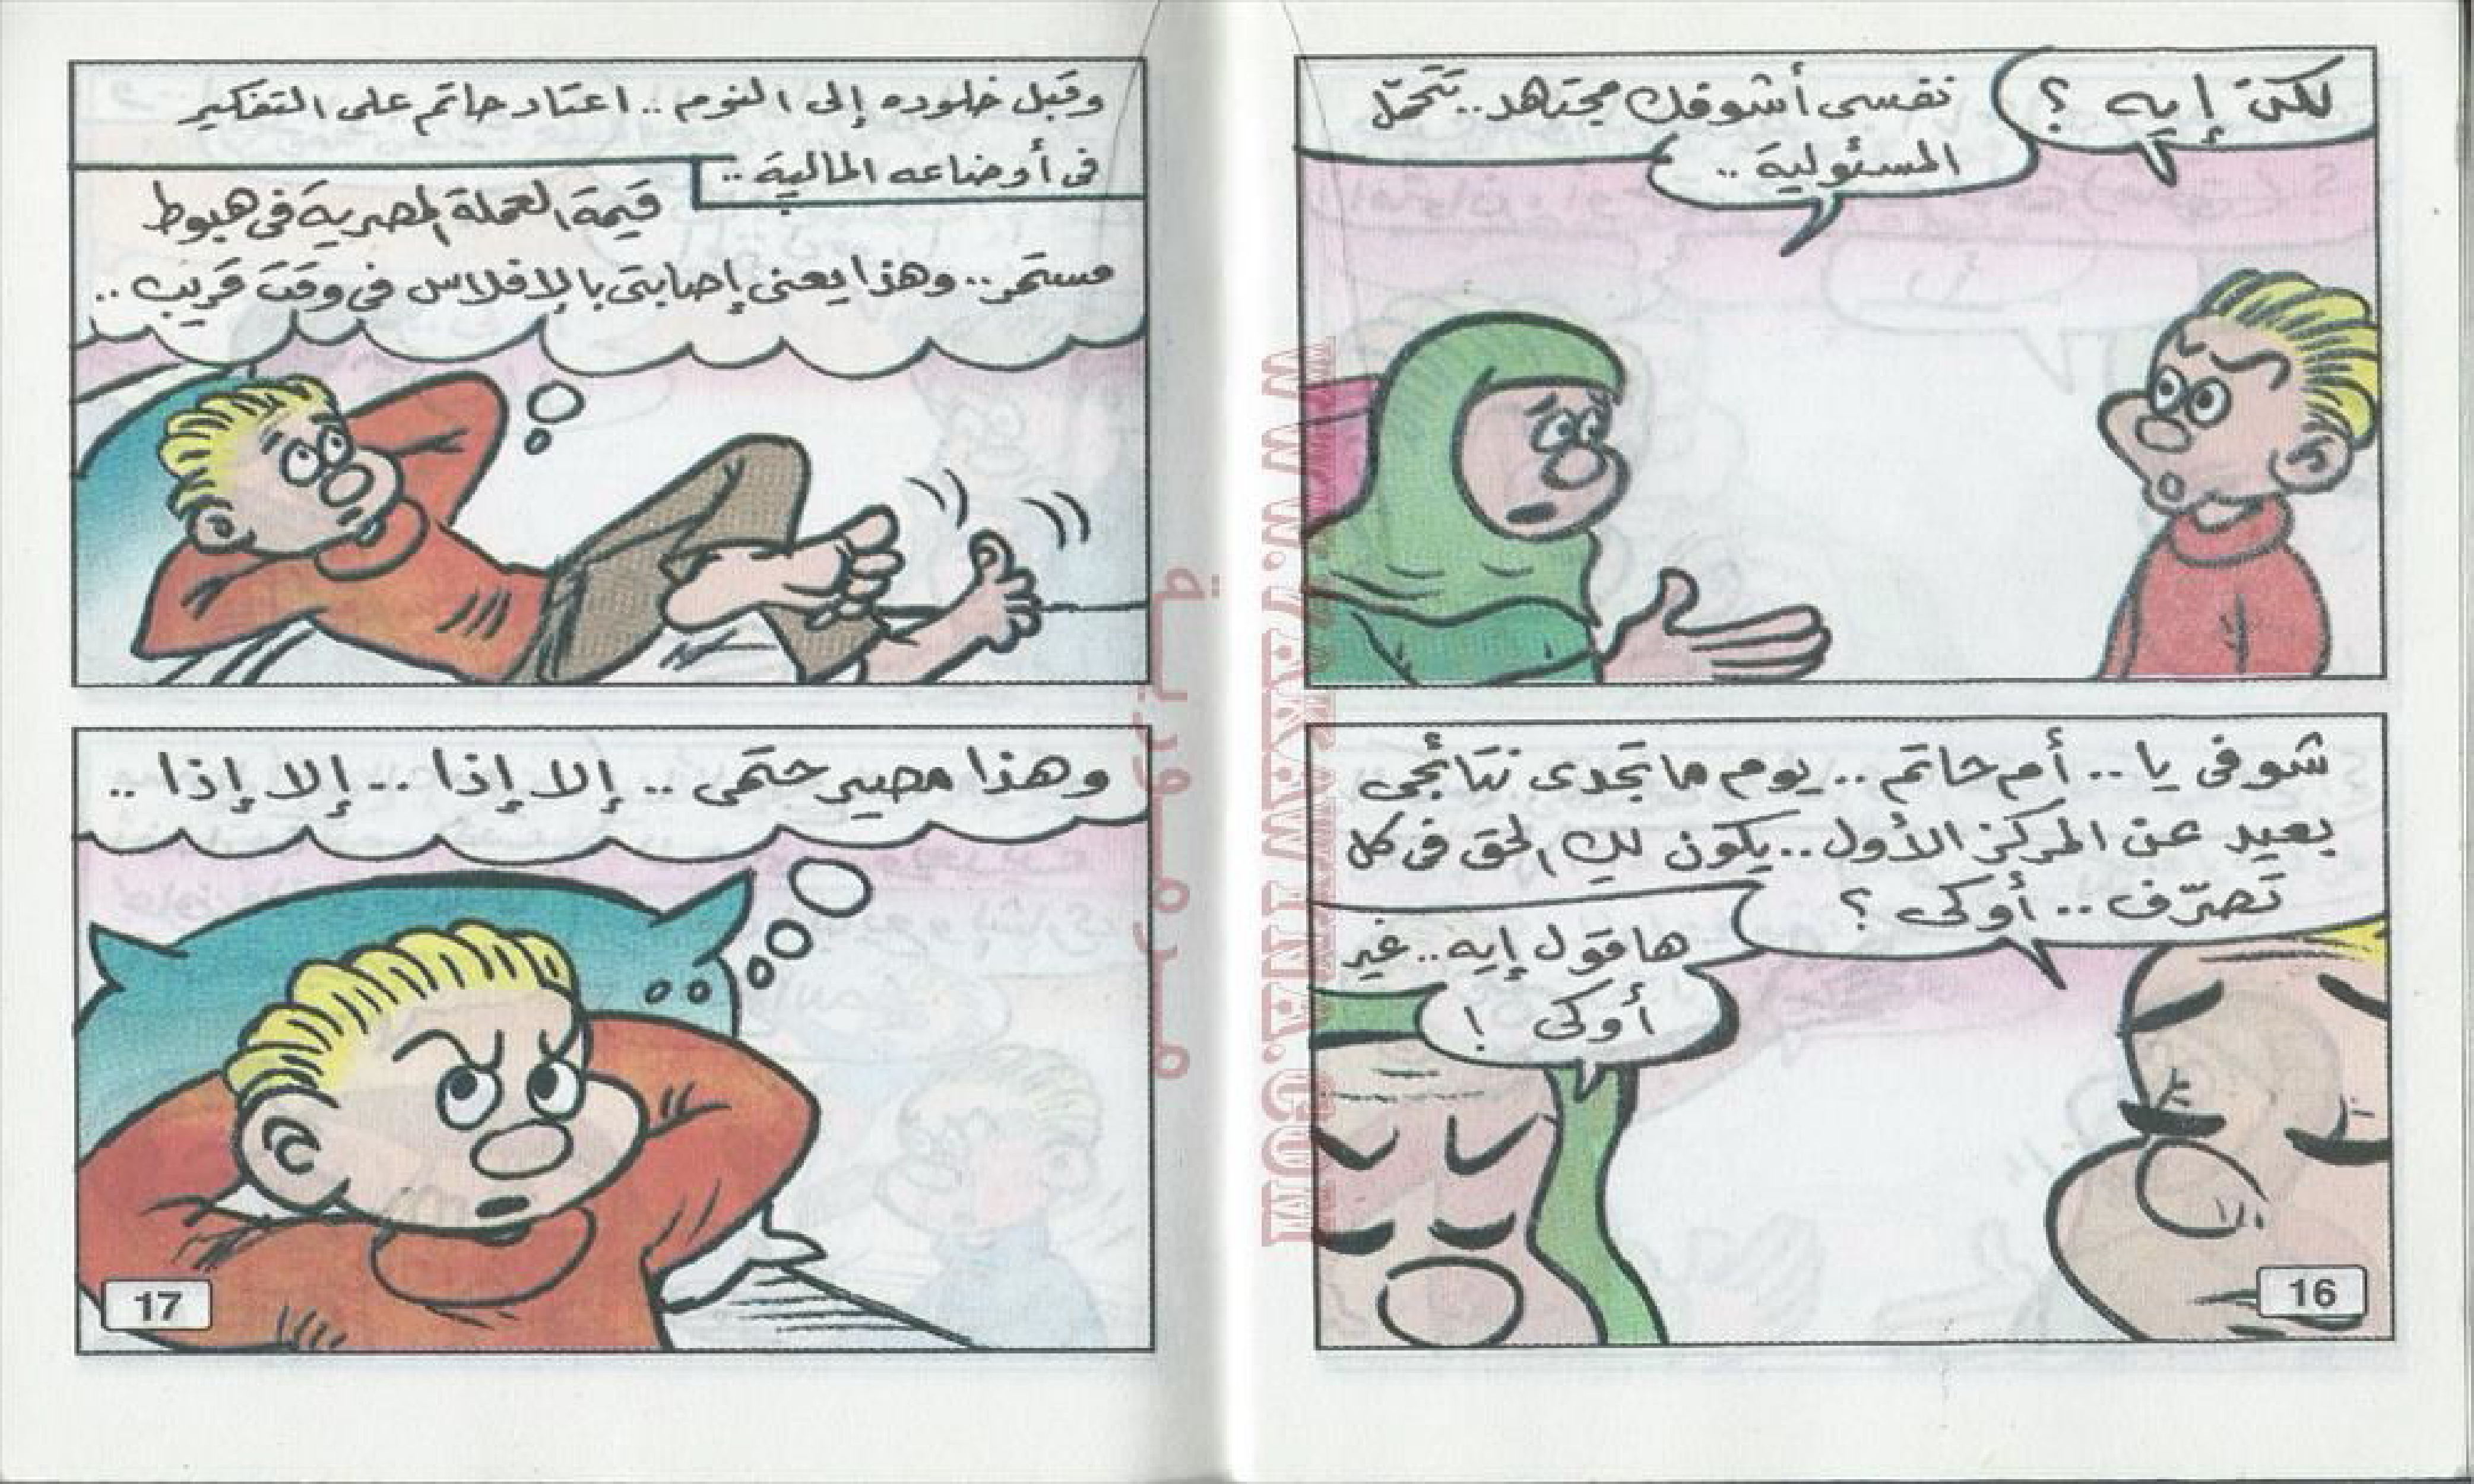 لكن إيه ؟
نفسى أشوفك مجتهد.. تتحمّل
المسئولية ..
شوفى يا .. أم حاتم .. يوم ما تجدى نتائجى
بعيد عن المركز الأول .. يكون لك الحق فى كل
تصرّف .. أوكى ؟
هاقول إيه .. غير
أوكى !
16
وقبل خلوده إلى النوم .. اعتاد حاتم على التفكير
فى أوضاعه المالية ..
قيمة العملة المصرية فى هبوط
مستمر .. وهذا يعنى إصابتى بالإفلاس فى وقت قريب ..
وهذا مصير حتمى .. إلا إذا .. إلا إذا ..
17